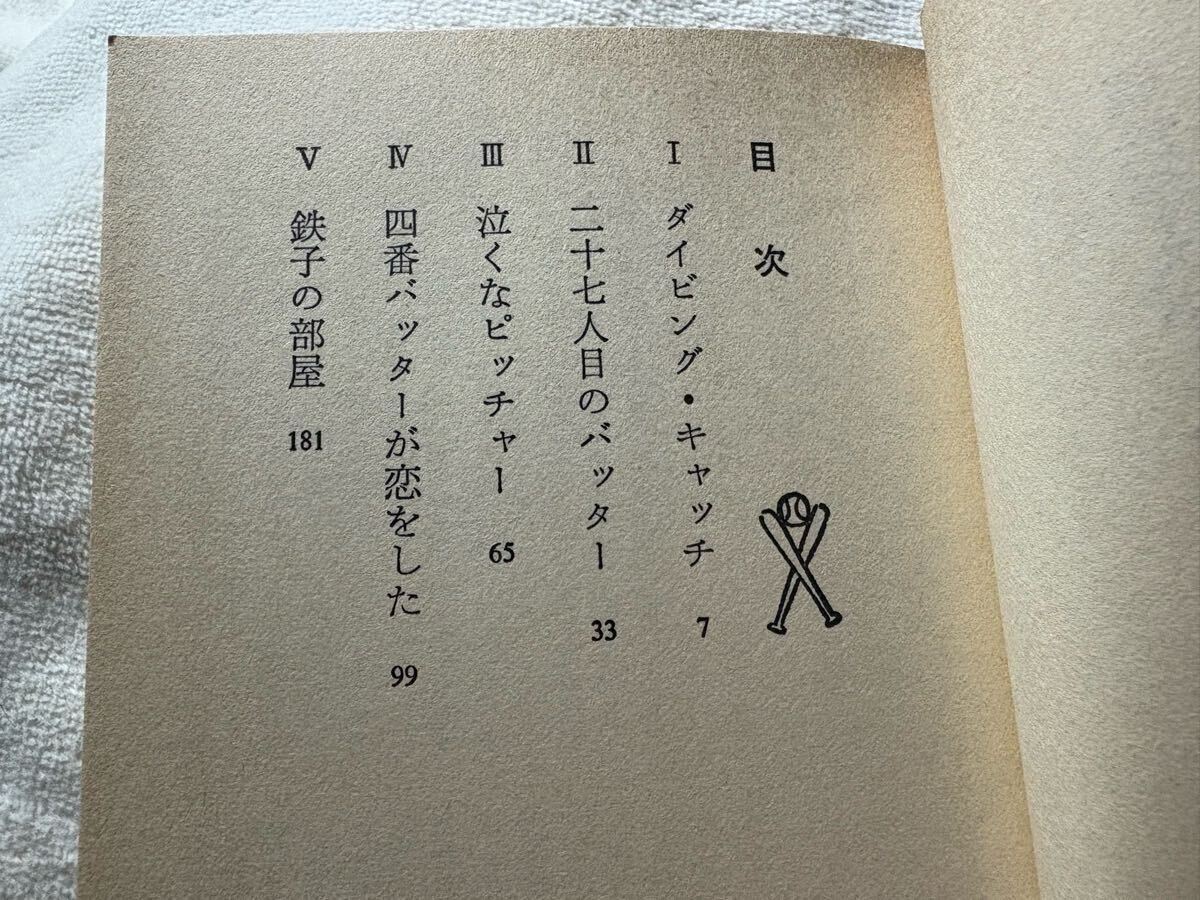 目次
Ⅰ ダイビング・キャッチ 7
Ⅱ 二十七人目のバッター 33
Ⅲ 泣くなピッチャー 65
Ⅳ 四番バッターが恋をした 99
Ⅴ 鉄子の部屋 181